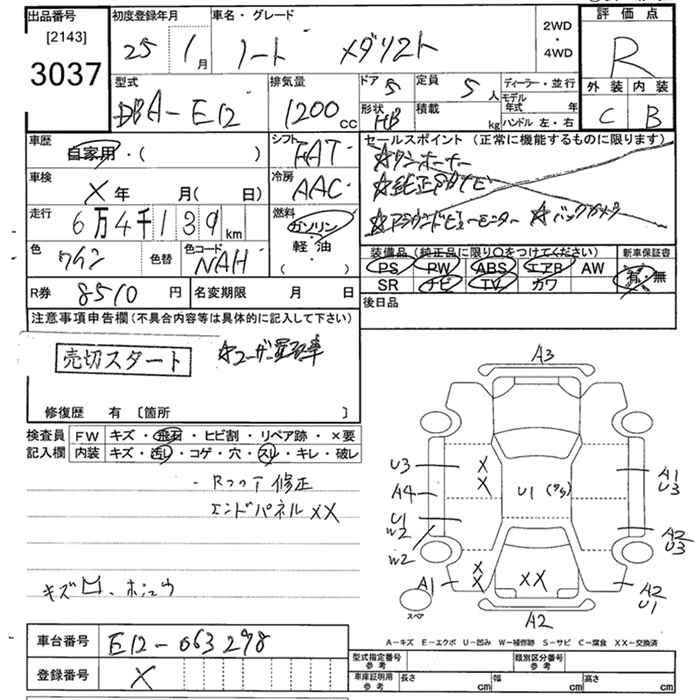 出品番号
[2143]
3037
初度登録年月
25 1 月
車名・グレード
ノート メダリスト
2WD
・
4WD
評価点
R
外装 内装
C B
型式
DBA-E12
排気量
1200 cc
ドア 5
定員 5 人
ディーラー・並行
モデル年式 年
形状 HB
積載 kg
ハンドル 左・右
車歴
自家用・( )
シフト
FAT
セールスポイント (正常に機能するものに限ります)
☆純正ナビ
☆アラウンドビューモニター ☆バックカメラ
車検
X 年 月( 日)
冷房
AAC
走行
6万4千139 km
燃料
ガソリン
・
軽・油
・( )
色
ワイン
色替
色コード
NAH
装備品 (純正品に限り〇をつけてください)
PS PW ABS エアB AW
SR ナビ TV カワ
新車保証書
有・無
R券 8510 円
名変期限 月 日
後日品
注意事項申告欄 (不具合内容等は具体的に記入して下さい)
売切スタート
☆ユーザー買取車
修復歴 有 [箇所 ]
検査員
記入欄
FW キズ・飛石・ヒビ割・リペア跡・×要
内装 キズ・汚し・コゲ・穴・スリ・キレ・破レ
・Rフロア修正
エンドパネルXX
A3
U3
X
X
A4
U1
W2
W2
A1
X
X
XX
A2
A1
U3
A2
U3
A2
U1
スペア
A-キズ E-エクボ U-凹み W-補修跡 S-サビ C-腐食 XX-交換済
車台番号 E12-063298
登録番号 X
型式指定番号
参考
類別区分番号
参考
車庫証明用
参考
長さ cm
幅 cm
高さ cm